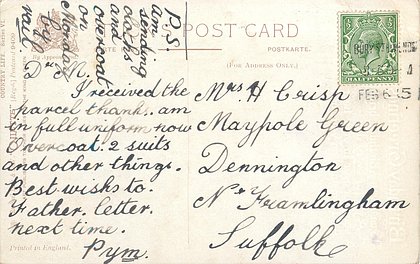 POST CARD
POSTKARTE.
(FOR ADDRESS ONLY.)
P.S
am
sending
clocks
and
overcoat
on
Monday
by
rail
Dr M.
I received the
parcel thanks. am
in full uniform now
Overcoat. 2 suits
and other things.
Best wishes to.
Father. letter.
next time.
Pym.
Mrs H Crisp
Maypole Green
Dennington
Nr Framlingham
Suffolk
BURY ST EDMUNDS
FEB 6 15
Printed in England.